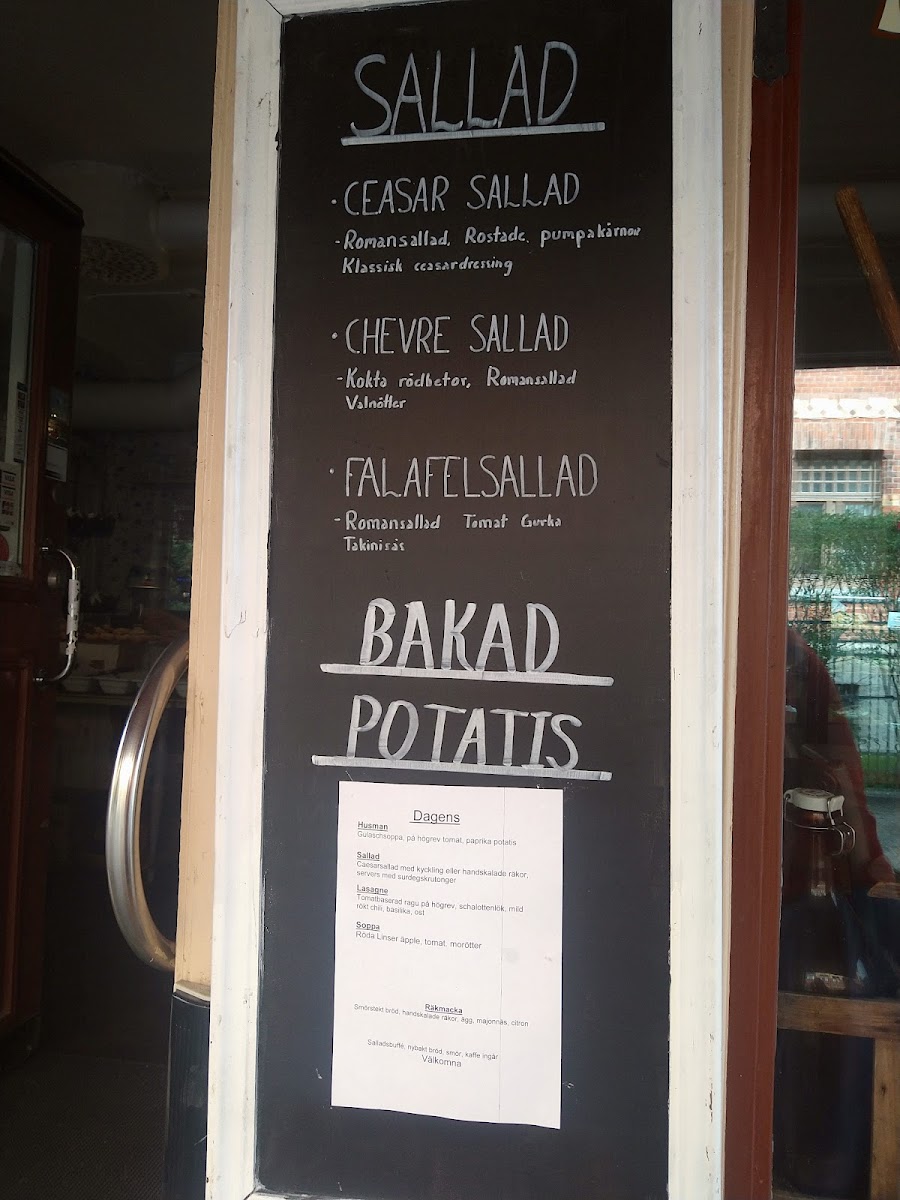 SALLAD
· CEASAR SALLAD
- Romansallad, Rostade. pumpakärnor
Klassisk ceasardressing
· CHEVRE SALLAD
- Kokta rödbetor, Romansallad
Valnötter
· FALAFELSALLAD
- Romansallad Tomat Gurka
Takinisås
BAKAD
POTATIS
Dagens
Husman
Gulaschsoppa, på högrev tomat, paprika potatis
Sallad
Caesarsallad med kyckling eller handskalade räkor,
servers med surdegskrutonger
Lasagne
Tomatbaserad ragu på högrev, schalottenlök, mild
rökt chili, basilika, ost
Soppa
Röda Linser äpple, tomat, morötter
Räkmacka
Smörstekt bröd, handskalade räkor, ägg, majonnäs, citron
Salladsbuffé, nybakt bröd, smör, kaffe ingår
Välkomna